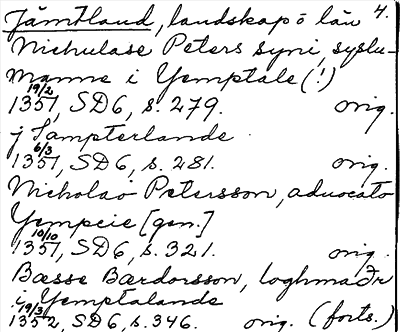 Jämtland, landskap o län 4.
Nichulase Peters syni, syslu-
manne i Yemptale (!)
19/2 1357, SD6, s. 279. orig.
j Iampterlande
6/3 1357, SD6, s. 281. orig.
Nicholao Petersson, advocato
Yempcie [gen.]
10/10 1351, SD6, s. 321. orig.
Bæsse Bærdorsson, loghmaðr
i Yemptalande
19/3 1352, SD6, s. 346. orig. (forts.)